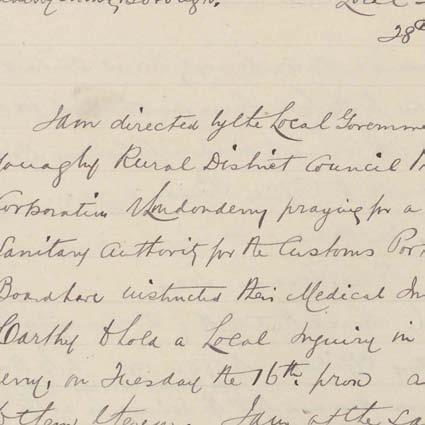 Borough. Local
28th
I am directed by the Local Governme
Rural District Council
Corporation Londonderry praying for a
Sanitary Authority for the Customs Por
Board have instructed their Medical In
Carthy to hold a Local Inquiry in
erry, on Tuesday the 16th. prox a
I am at the sa